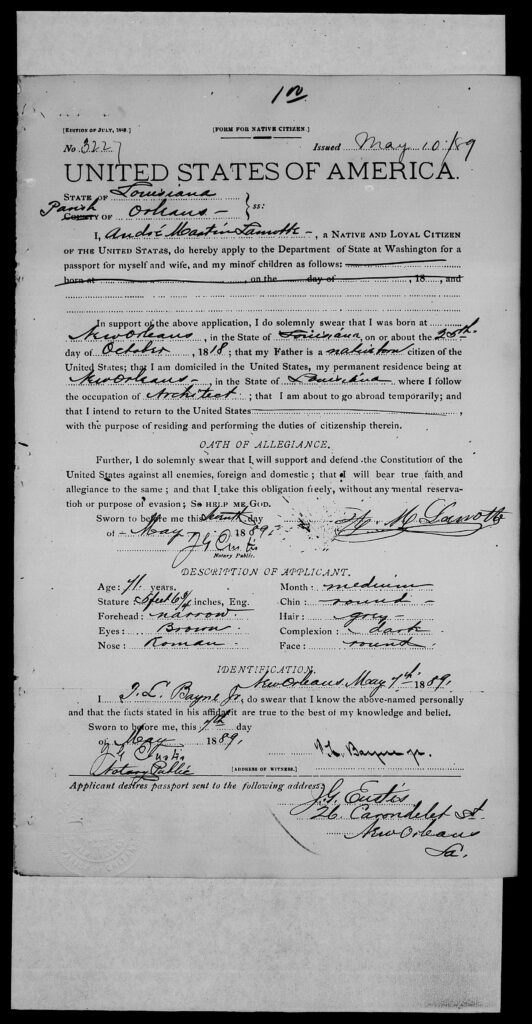 1 00
[EDITION OF JULY, 1888.] [FORM FOR NATIVE CITIZEN.]
No. 3227 Issued May 10/89
UNITED STATES OF AMERICA.
STATE OF Louisiana
Parish County OF Orleans ss:
I, André Martin Lamotte, a NATIVE AND LOYAL CITIZEN
OF THE UNITED STATES, do hereby apply to the Department of State at Washington for a
passport for myself and wife, and my minor children as follows:
born at , on the day of , 18 , and
In support of the above application, I do solemnly swear that I was born at
New Orleans, in the State of Louisiana, on or about the
day of October, 1818; that my Father is a citizen of the
United States; that I am domiciled in the United States, my permanent residence being at
New Orleans, in the State of Louisiana where I follow
the occupation of Architect; that I am about to go abroad temporarily; and
that I intend to return to the United States
with the purpose of residing and performing the duties of citizenship therein.
OATH OF ALLEGIANCE.
Further, I do solemnly swear that I will support and defend the Constitution of the
United States against all enemies, foreign and domestic; that I will bear true faith and
allegiance to the same; and that I take this obligation freely, without any mental reserva-
tion or purpose of evasion; SO HELP ME GOD.
Sworn to before me this day
of May 1889. M Lamotte
J G Eustis
Notary Public.
DESCRIPTION OF APPLICANT.
Age: 71 years. Mouth: medium
Stature: 5 feet inches, Eng. Chin: round
Forehead: narrow Hair: grey
Eyes: Brown Complexion: dark
Nose: Roman Face: round
IDENTIFICATION.
New Orleans May 7th 1889.
I T. L. Bayne Jr, do swear that I know the above-named personally
and that the facts stated in his affidavit are true to the best of my knowledge and belief.
Sworn to before me, this 7th day
of May 1889.
J G Eustis T. L. Bayne jr.
Notary Public [ADDRESS OF WITNESS.]
Applicant desires passport sent to the following address:
J.G. Eustis
26. Carondelet St.
New Orleans
La.